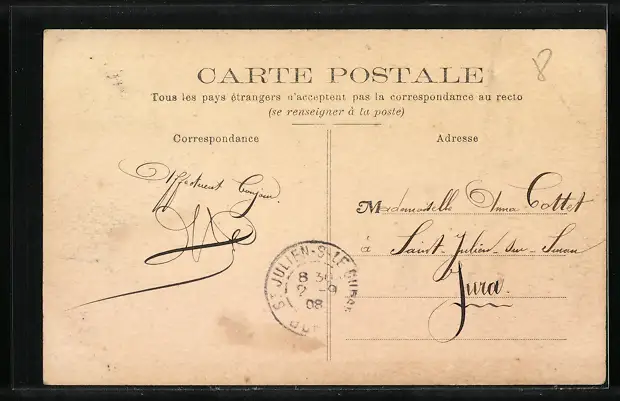 8
CARTE POSTALE
Tous les pays étrangers n'acceptent pas la correspondance au recto
(se renseigner à la poste)
Correspondance
Adresse
Affectueux bonjour.
Mademoiselle Anna Cottet
à Saint-Julien-sur-Suran
Jura.
ST JULIEN-S-LE SURAN
8 30
2 -9
08